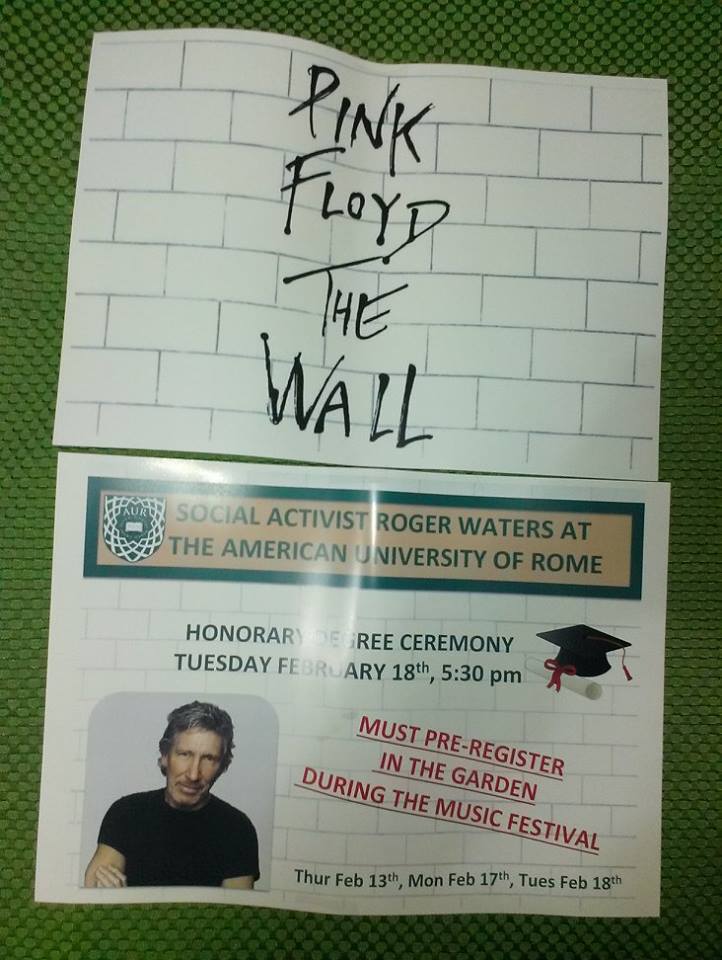 PINK
FLOYD
THE
WALL
AUR
SOCIAL ACTIVIST ROGER WATERS AT
THE AMERICAN UNIVERSITY OF ROME
HONORARY DEGREE CEREMONY
TUESDAY FEBRUARY 18th, 5:30 pm
MUST PRE-REGISTER
IN THE GARDEN
DURING THE MUSIC FESTIVAL
Thur Feb 13th, Mon Feb 17th, Tues Feb 18th